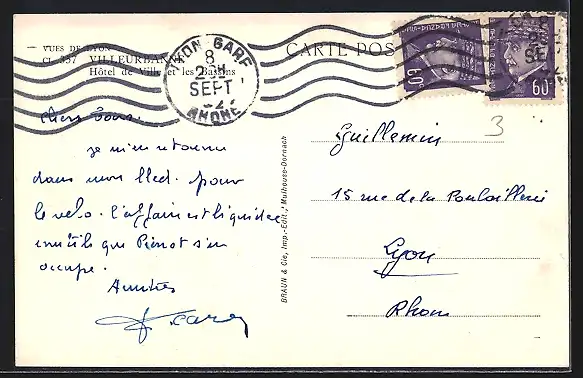 VUES DE LYON
Cl. 337 VILLEURBANNE
Hôtel de Ville et les Bassins
CARTE POS
LYON GARE
8
SEPT
42
RHONE
60
60
3
chers Tous.
je m'en retourne
dans mon bled. pour
le velo. l'affaire est liquidée
inutile que Pierrot s'en
occupe.
Amitiés
BRAUN & Cie, Imp.-Edit., Mulhouse-Dornach
Guillemin
15 rue de la Poulaillerie
Lyon
Rhone